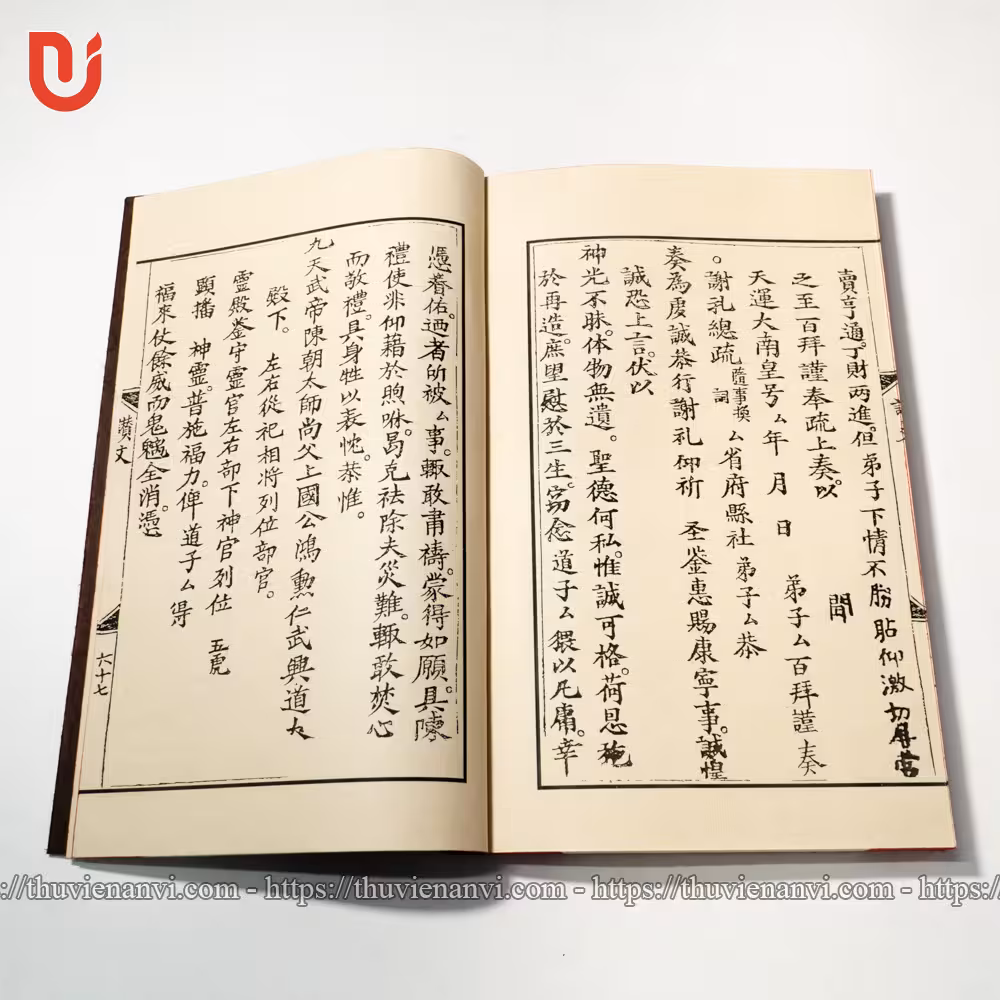 賣亨通。丁財两進。但弟子下情不勝貼仰激切屏营
之至百拜謹奉疏上奏。以 聞
天運大南皇号厶年 月 日 弟子厶百拜謹奏
。謝礼總疏 隨事換詞 厶省府縣社 弟子厶恭
奏為虔誠恭行謝礼仰祈 圣鉴惠賜康寧事。誠惶
誠恐上言。伏以
神光不昧。体物無遺。聖德何私。惟誠可格。荷恩施
於再造。庶望慰於三生。窃念 道子厶猥以凡庸。幸
憑蓍佑。迺者的被厶事。輒敢肅禱。蒙得如願。具陳
禮使非仰籍於煦咻。曷克祛除夫災難。輒敢葵心
而敬禮。具身牲以表忱。恭惟。
九天武帝陳朝太師尚父上國公鴻勳仁武興道大
殿下。 左右從祀相將列位部官。
靈殿鉴守靈官左右部下神官列位 五虎
顯播 神靈。普施福力。俾道子厶得
福來仗餘威而鬼魑全消。憑
讚文
六十七
://thuvienanvi.com - https://thuvienanvi.com - https://thuvienanvi.com - https:/